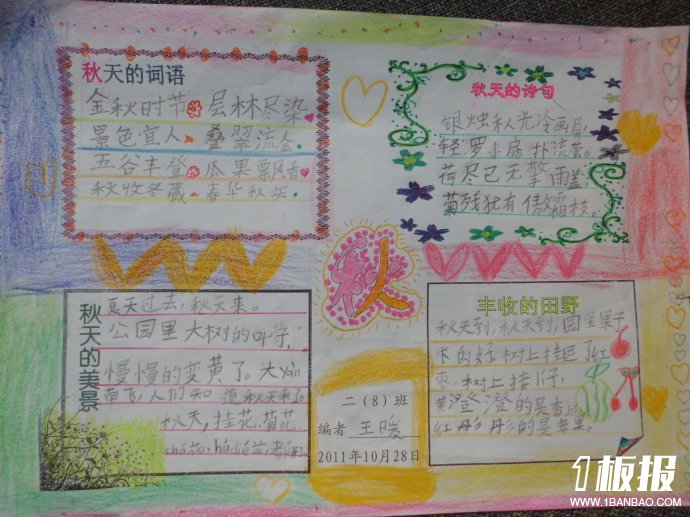 秋天的词语
金秋时节 层林尽染
景色宜人 叠翠流金
五谷丰登 瓜果飘香
秋收冬藏 春华秋实
秋天的诗句
银烛秋光冷画屏
轻罗小扇扑流萤。
荷尽已无擎雨盖
菊残犹有傲霜枝。
秋
秋天的美景
夏天过去,秋天来。
公园里大树的叶子,
慢慢的变黄了。大yàn
南飞,人们知道秋天来了
秋天,桂花、菊花、
húdié兰、都开
二(8)班
编者 王暖
2011年10月28日
丰收的田野
秋天到,秋天到,园里果子
长的好,树上挂起了红
枣,树上接
黄澄澄的是香
红彤彤的是苹果。
1板报
WWW.1BANBAO.COM